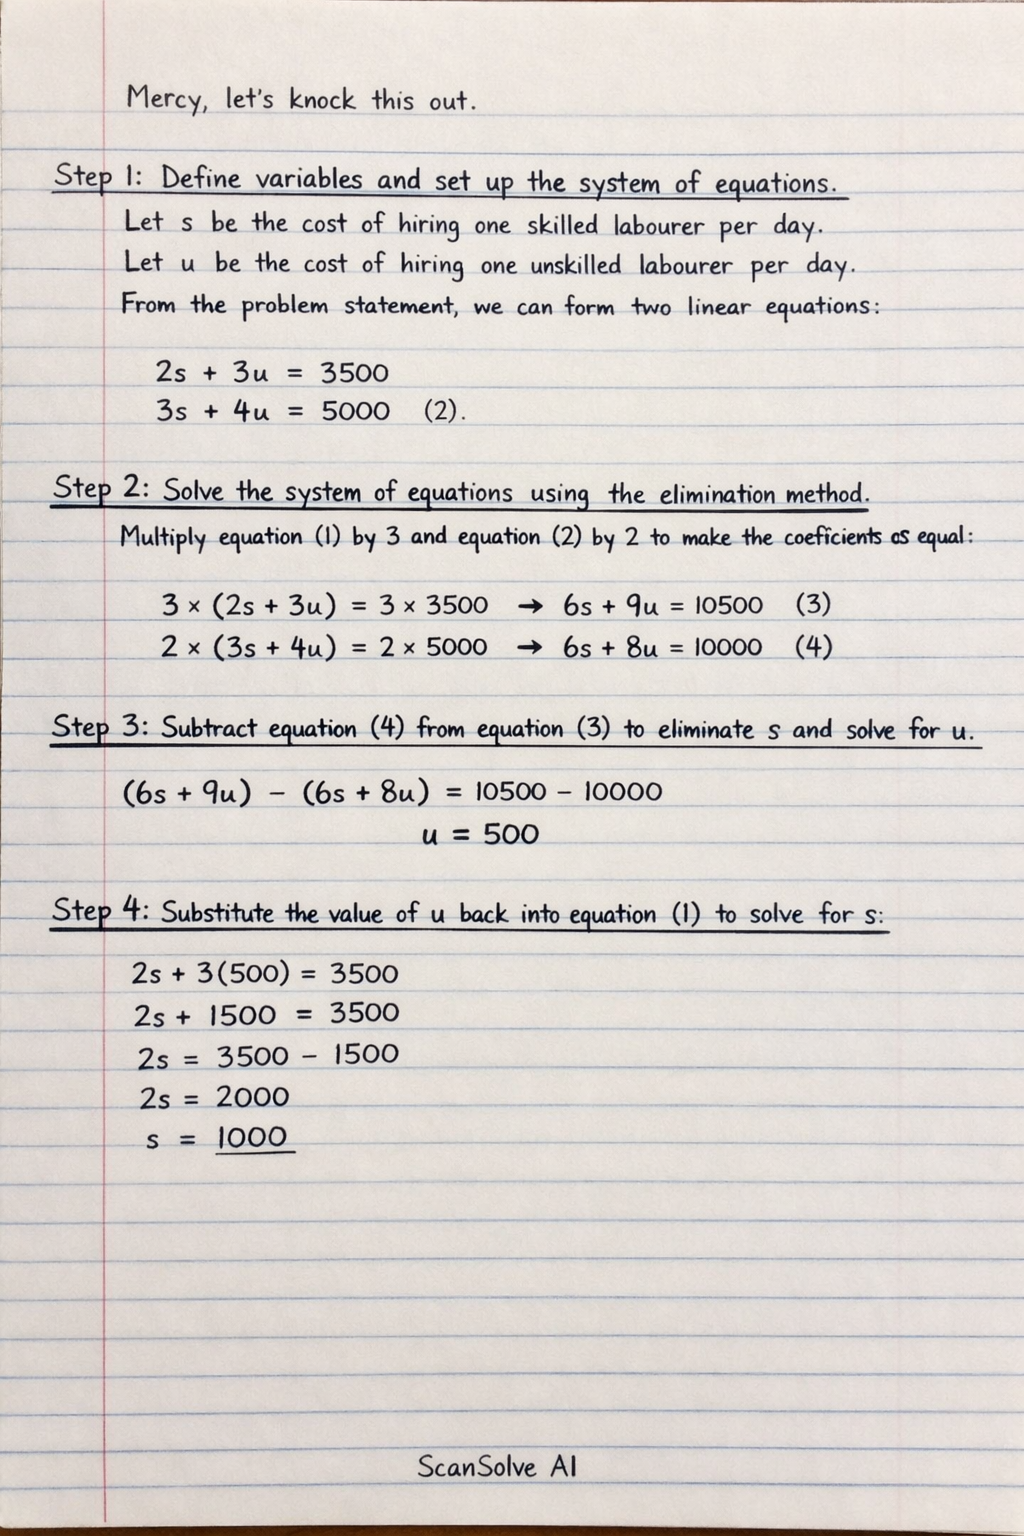 Mercy, let's knock this out.
Step 1: Define variables and set up the system of equations.
Let s be the cost of hiring one skilled labourer per day.
Let u be the cost of hiring one unskilled labourer per day.
From the problem statement, we can form two linear equations:
2s + 3u = 3500
3s + 4u = 5000 (2).
Step 2: Solve the system of equations using the elimination method.
Multiply equation (1) by 3 and equation (2) by 2 to make the coeficients os equal:
3 × (2s + 3u) = 3 × 3500 → 6s + 9u = 10500 (3)
2 × (3s + 4u) = 2 × 5000 → 6s + 8u = 10000 (4)
Step 3: Subtract equation (4) from equation (3) to eliminate s and solve for u.
(6s + 9u) - (6s + 8u) = 10500 - 10000
u = 500
Step 4: Substitute the value of u back into equation (1) to solve for s:
2s + 3(500) = 3500
2s + 1500 = 3500
2s = 3500 - 1500
2s = 2000
s = 1000
ScanSolve AI